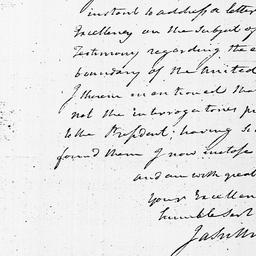 instant to address a letter
Excellency on the Subject of
Testimony regarding the
boundary of the United
I therein mentioned the
not the interrogatories
to the President; having
found them I now inclose
and am with great
Your Excellen
humble Sert